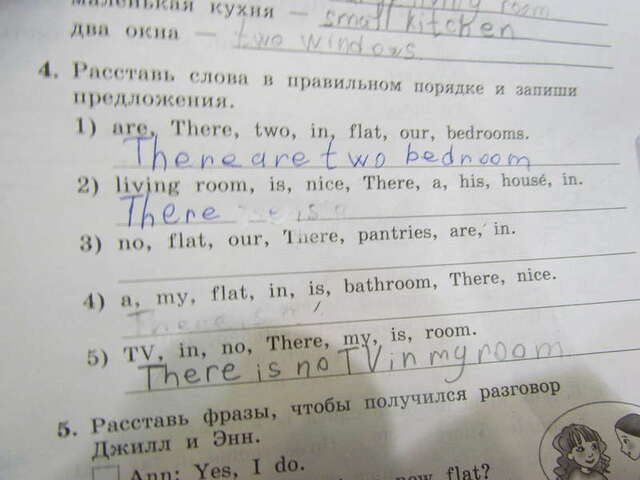 living room
маленькая кухня — small kitchen
два окна — two windows
4. Расставь слова в правильном порядке и запиши
предложения.
1) are, There, two, in, flat, our, bedrooms.
There are two bedroom
2) living room, is, nice, There, a, his, house, in.
There is a
3) no, flat, our, There, pantries, are, in.
4) a, my, flat, in, is, bathroom, There, nice.
There is
5) TV, in, no, There, my, is, room.
There is no TV in my room
5. Расставь фразы, чтобы получился разговор
Джилл и Энн.
Ann: Yes, I do.
new flat?